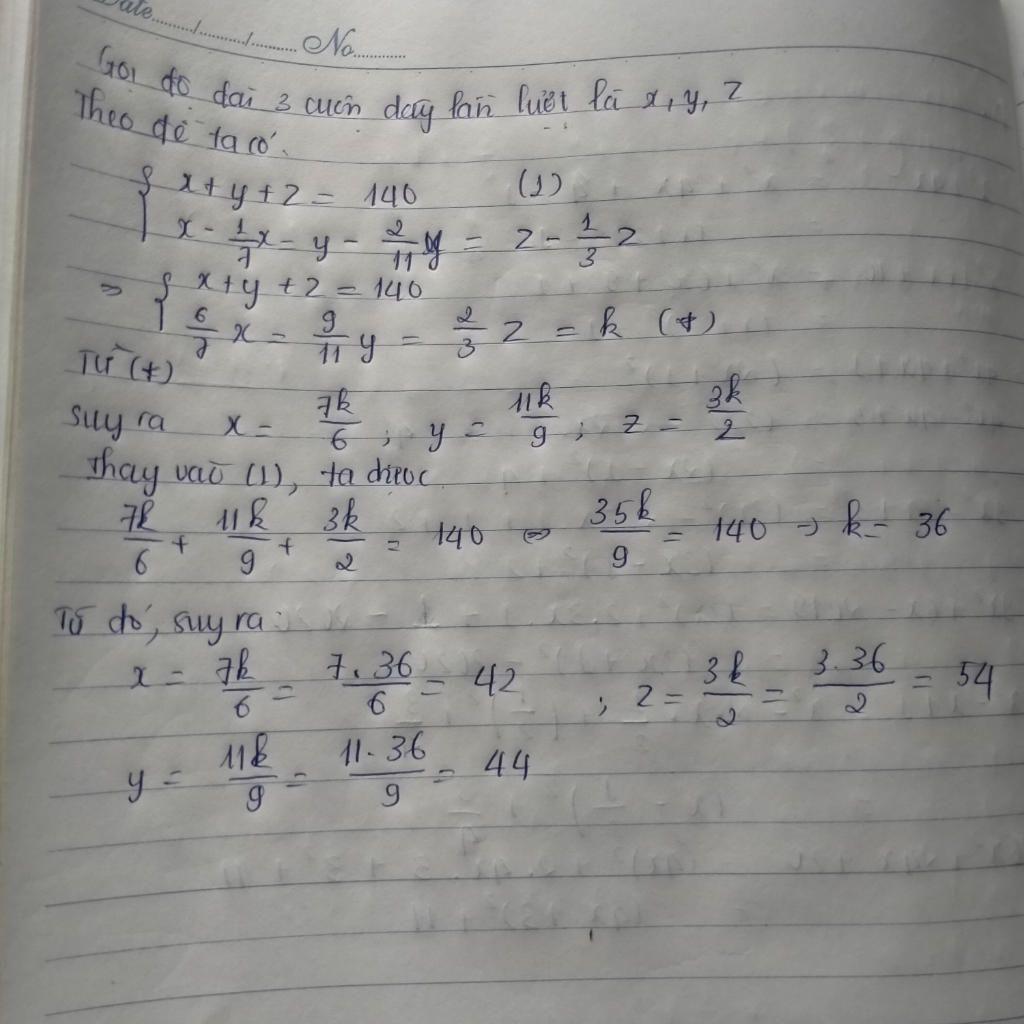 Date....../....../...... No......
Gọi độ dài 3 cuộn dây lần lượt là x, y, z
Theo đề ta có.
{ x + y + z = 140 (1)
x - 1/7 x = y - 2/11 y = z - 1/3 z
=> { x + y + z = 140
6/7 x = 9/11 y = 2/3 z = k (*)
Từ (*)
suy ra x = 7k/6 ; y = 11k/9 ; z = 3k/2
Thay vào (1), ta được
7k/6 + 11k/9 + 3k/2 = 140 <=> 35k/9 = 140 => k = 36
Từ đó, suy ra :
x = 7k/6 = 7.36/6 = 42 ; z = 3k/2 = 3.36/2 = 54
y = 11k/9 = 11.36/9 = 44